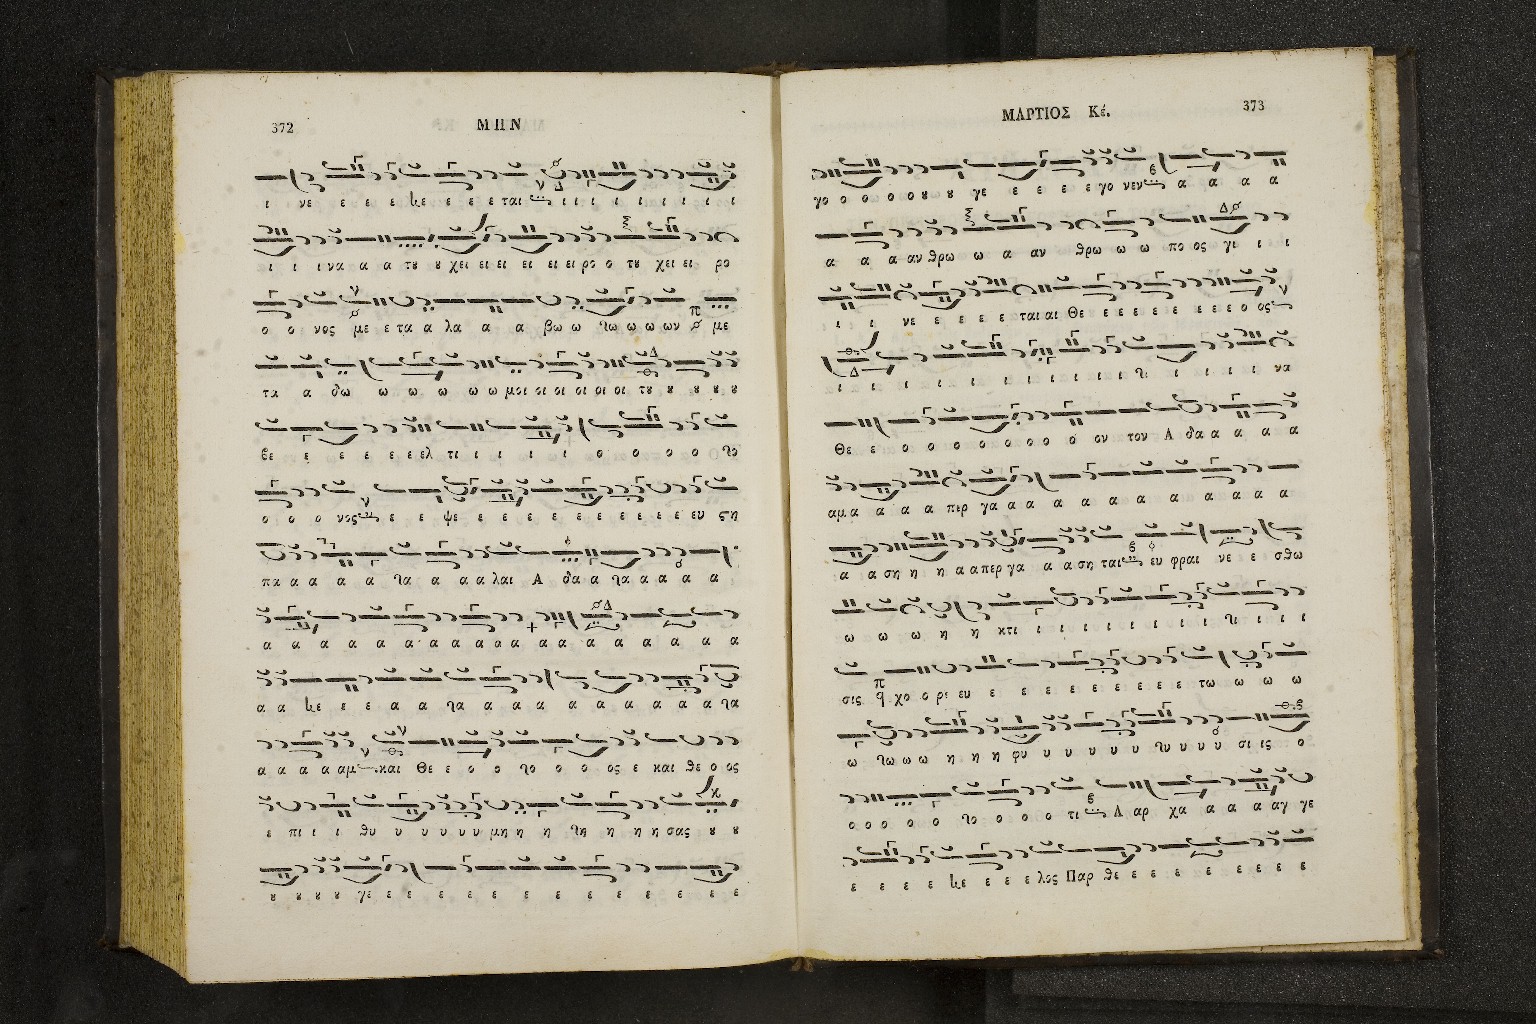 372
ΜΗΝ
ι νε ε ε ε κε ε ε ε ται ι ι ι ι ι ι ι ι
ι ι ι να α α τȣ ȣ χει ει ει ει ει ει ρο ο τȣ χει ει ρο
ο ο νος με ε τα α λα α α βω ω τω ω ω ων με
τα α δω ω ω ω ω ω μοι οι οι οι οι οι τȣ ȣ ȣ ȣ ȣ
βε ε ε ε ε ε ελ τι ι ι ι ι ο ο ο ο το
ο ο ο νος ε ε ψε ε ε ε ε ε ε ε ε ε ε ευ ςη
πα α α α α τα α α α λαι Α δα α τα α α α α
α α α α α α α α α α α α α α α α α α
α α κε ε ε α α τα α α α α α α α α α τα
α α α α αμ και Θε ε ο ο το ο ο ος ε και θε ο ος
ε πι ι ι θυ υ υ υ υ υ μη η η τη η η η σας ȣ ȣ
ȣ ȣ ȣ ȣ γε ε ε ε ε ε ε ε ε ε ε ε ε
ΜΑΡΤΙΟΣ Κέ.
373
γο ο ο ο ο ȣ ȣ γε ε ε ε ε γο νεν α α α α
α α α αν θρω ω α αν θρω ω ω πο ος γι ι ι
ι ι νε ε ε ε ε ται αι Θε ε ε ε ε ε ε ε ο ος
ι ι ι ι ι ι ι ι ι ι ι ι τι ι ι ι ι να
Θε ε ο ο ο ο ο ο ο ο ον τον Α δα α α α α
αμ α α α α περ γα α α α α α α α α α α α
α α ση η η α α περ γα α α ση ται ευ φραι νε ε σθω
ω ω ω η η κτι ι ι ι ι ι ι ι ι τι ι ι ι
σις χο ο ρε ευ ε ε ε ε ε ε ε ε ε τω ω ω ω
ω τω ω ω η η η φυ υ υ υ υ υ τυ υ υ υ σι ις ο
ο ο ο ο ο το ο ο ο τι Α αρ χα α α α αγ γε
ε ε ε ε κε ε ε ε λος Παρ θε ε ε ε ε ε ε ε ε